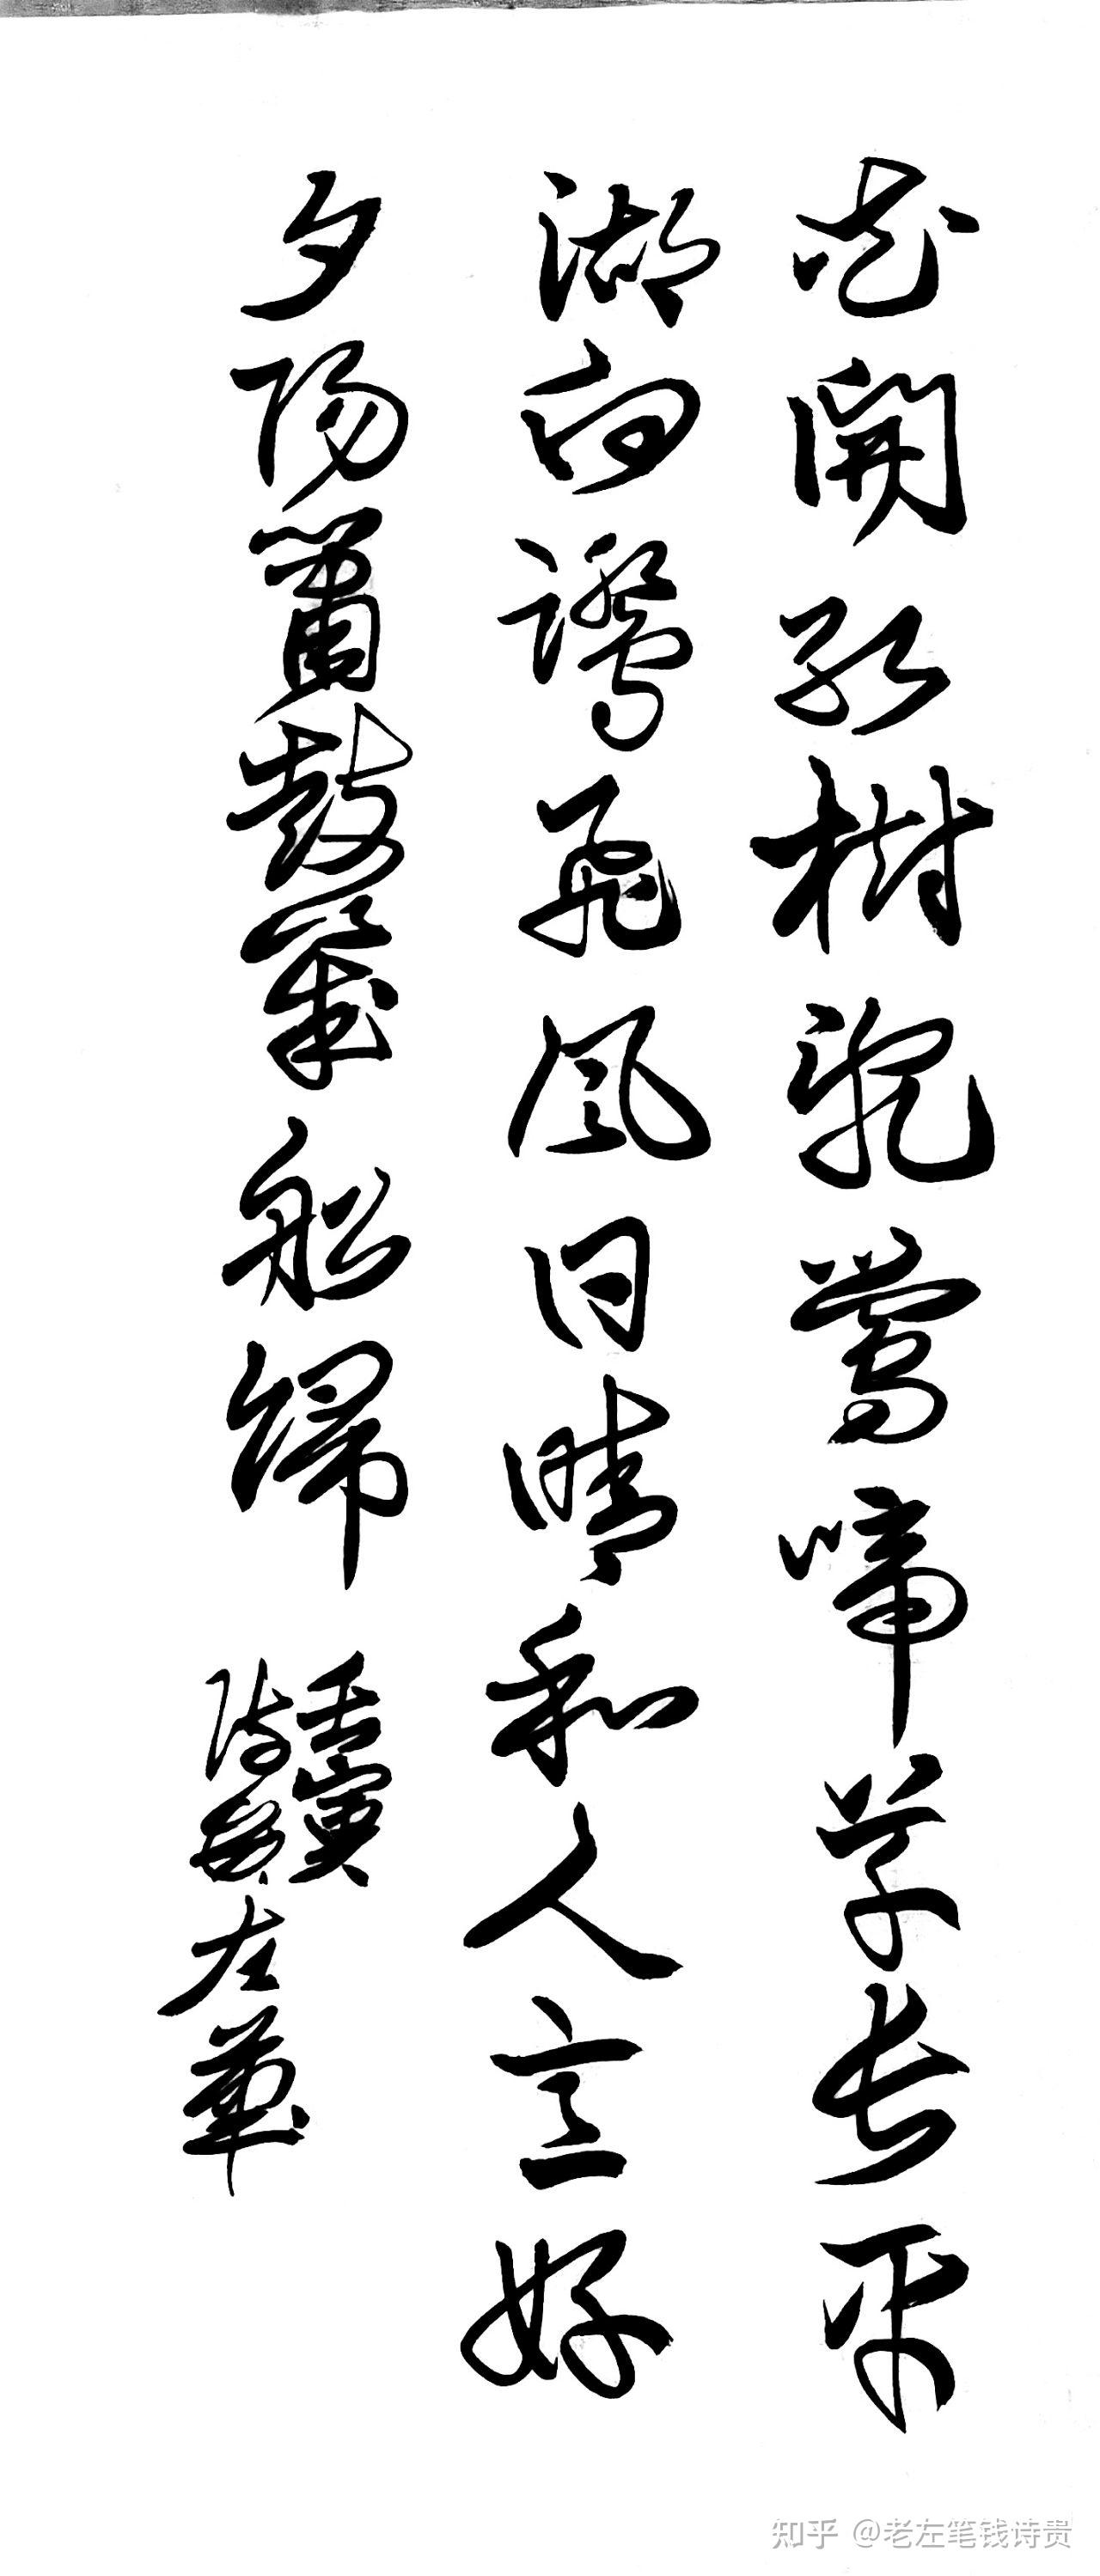 花開紅樹亂鶯啼草長平
湖白鷺飛風日晴和人意好
夕陽簫鼓幾船歸
壬寅
左華
知乎 @老左笔钱诗贵